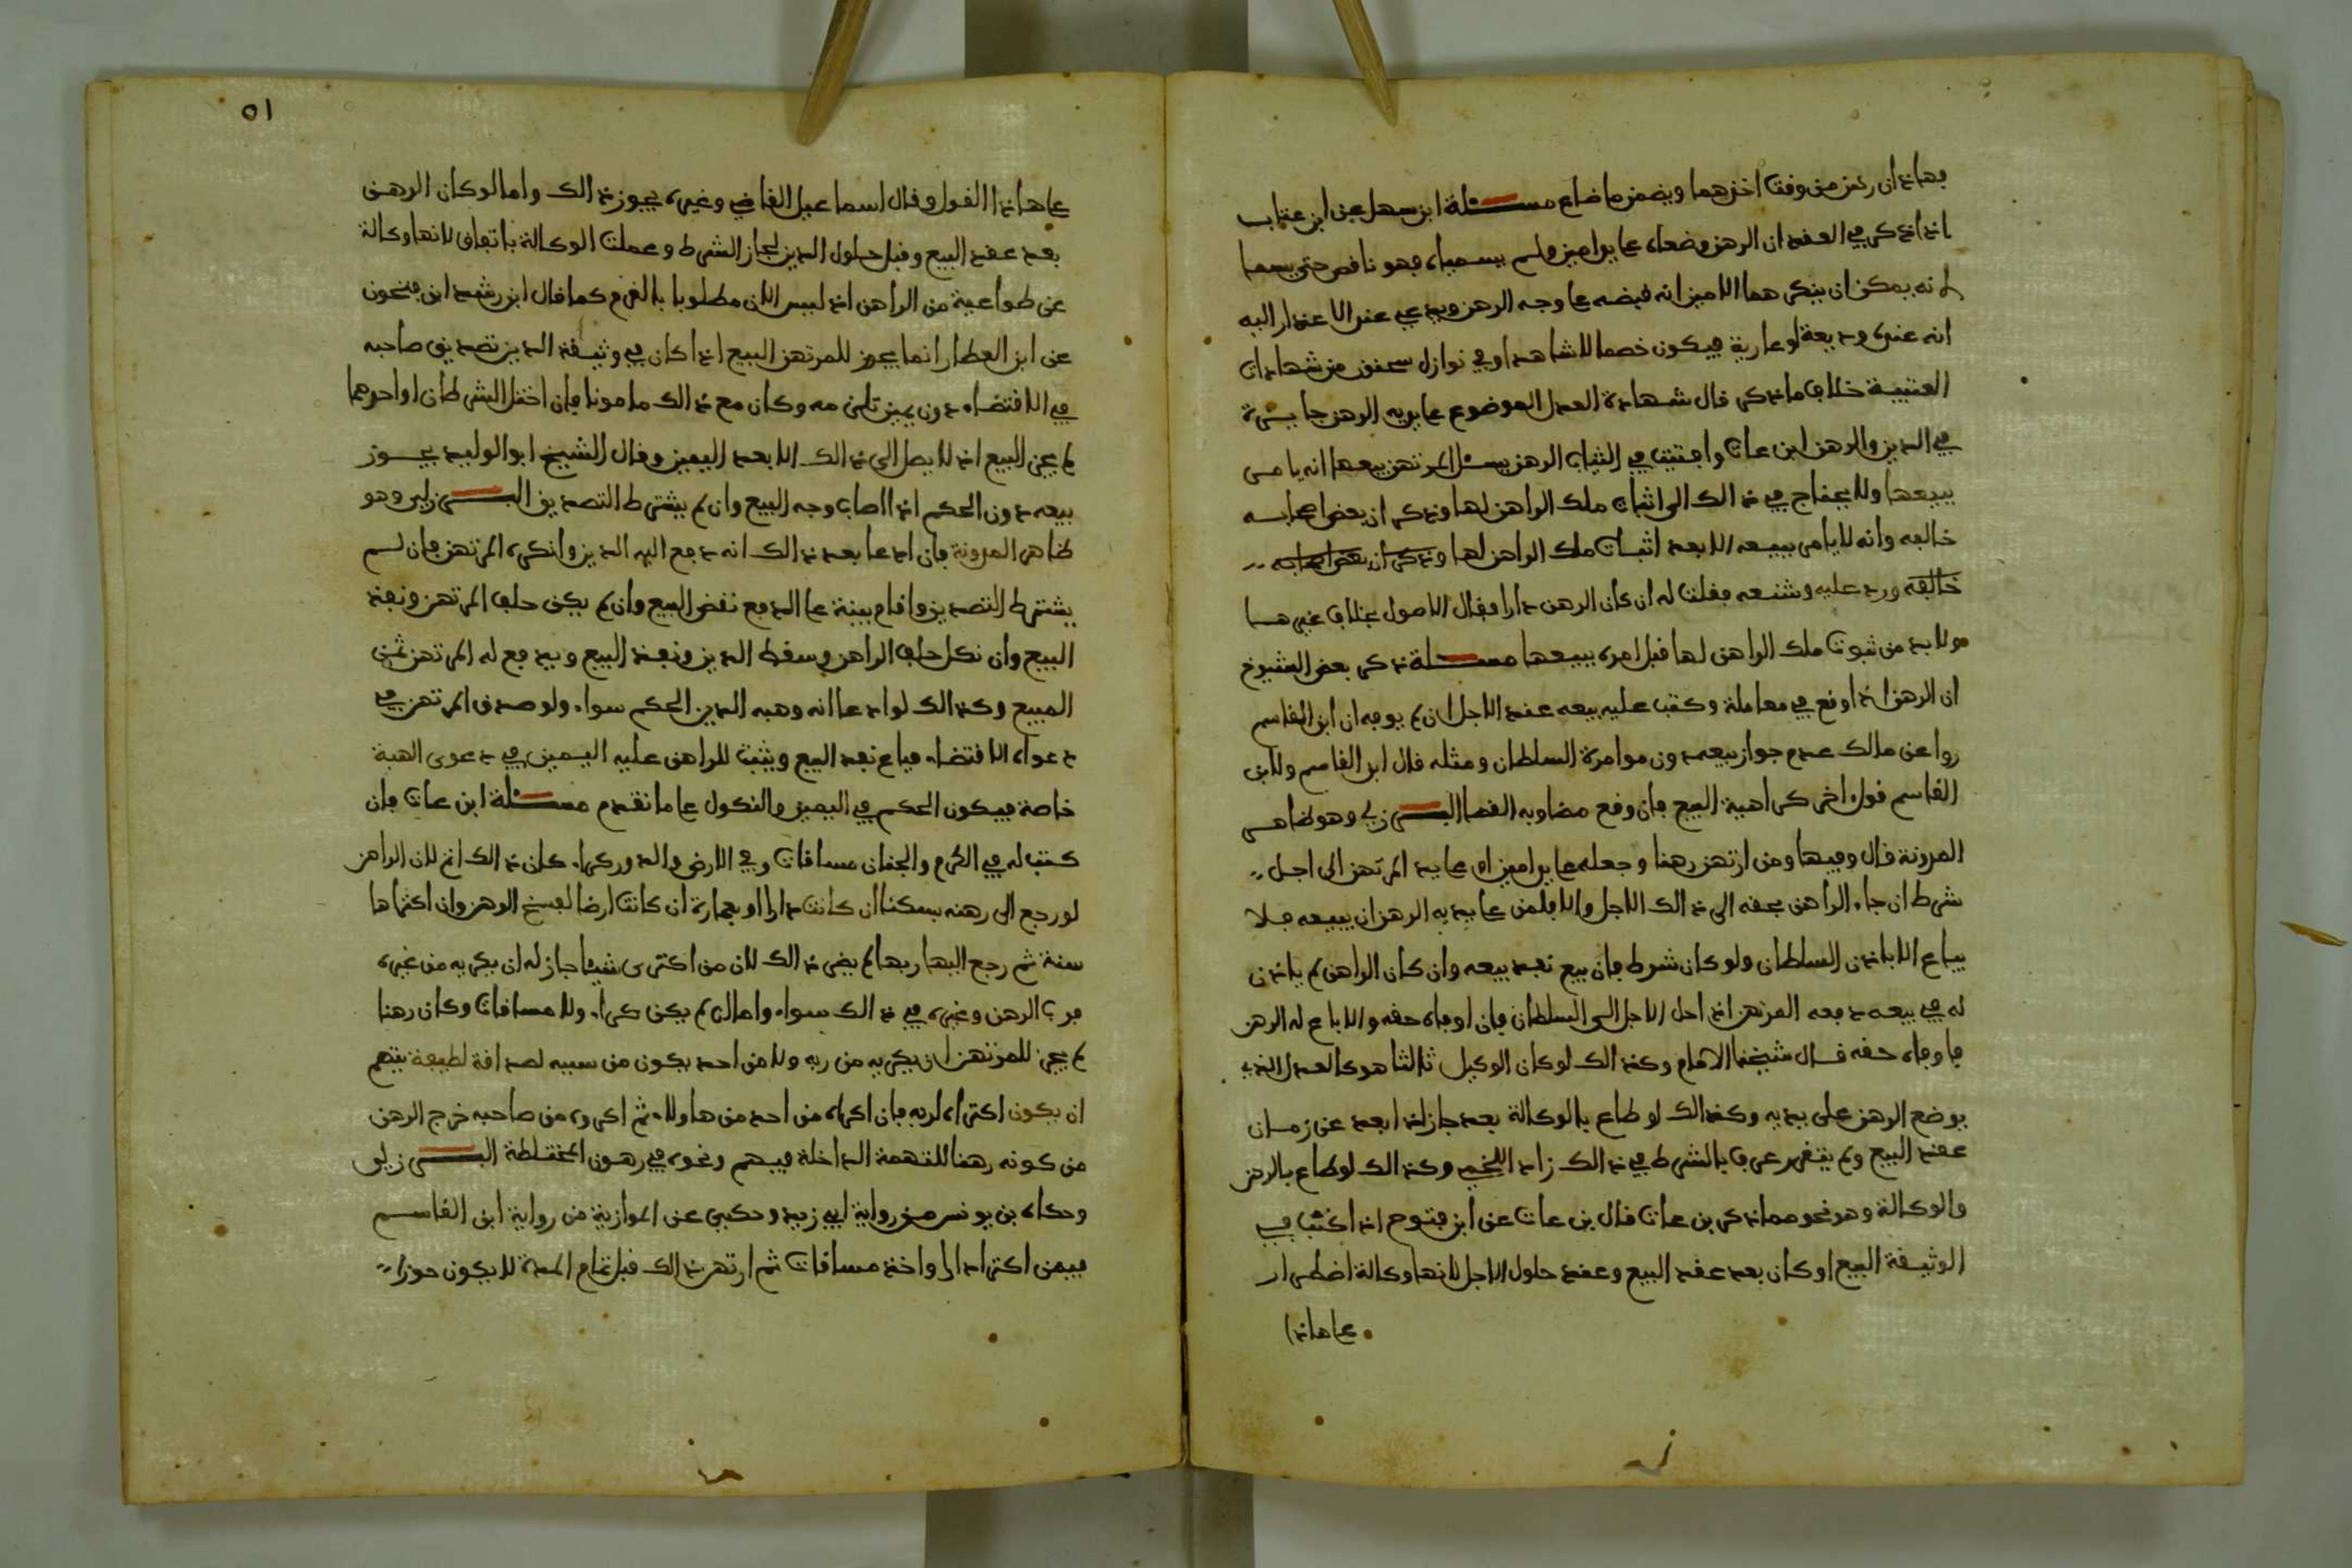 فهاذان رهن من وقت اخذهما ويضمن ما ضاع مسئلة ابن سهل عن ابن عتاب
اذا ذكر في العقد ان الرهن وضعاه على يد امين ولم يسمياه فهو ناقص حتى يسما
لانه يمكن ان ينكر هما الامين انه قبضه على وجه الرهن ويدعي عند الاعذار اليه
انه عنده وديعة او عارية فيكون خصما للشاهد او في نوازل سحنون من شهادات
العتبية خلاف ما ذكر قال شهادة العدل الموضوع على يديه الرهن جايزة
في الدين والرهن ابن عات وافتيت في الثياب الرهن يسئل المرتهن بيعها انه يامر
ببيعها ولا يحتاج في ذالك الى اثبات ملك الراهن لها وذكر ان بعض اصحابه
خالفه وانه لا يامر ببيعه الا بعد اثبات ملك الراهن لها وذكر ان بعض اصحابه
خالفه ورد عليه وشنعه فقلت له ان كان الرهن دارا فقال الاصول بخلاف غيرها
ولا بد من ثبوت ملك الراهن لها قبل امره ببيعها مسئلة ذكر بعض الشيوخ
ان الرهن اذا وقع في معاملة وكتب عليه بيعه عند الاجل ان لم يوفه ان ابن القاسم
روا عن مالك عدم جواز بيعه دون موامرة السلطان ومثله قال ابن القاسم ولابن
القاسم قول اخر كراهية البيع فان وقع مضا وبه القضا البرزلي وهو ظاهر
المدونة قال وفيها ومن ارتهن رهنا وجعله على يد امين او على يد المرتهن الى اجل
شرط ان جاء الراهن بحقه الى ذالك الاجل والا فلمن على يديه الرهن ان يبيعه فلا
يباع الا باذن السلطان ولو كان شرط فان بيع نفذ بيعه وان كان الراهن لم ياذن
له في بيعه دفعه المرتهن اذا حل الاجل الى السلطان فان اوفاه حقه والا باع له الرهن
فاوفاه حقه قال شيخنا الامام وكذالك لو كان الوكيل ثالثا هو كالعدل الذي
يوضع الرهن على يديه وكذالك لو طاع بالوكالة بعد جاز اذا بعد عن زمان
عقد البيع ولم يتقرر عرف بالشرط في ذالك زاد اللخمي وكذالك لو طاع بالرهن
والوكالة وهو نحو مما ذكر بن عات قال بن عات عن ابن فتوح اذا كتب في
الوثيقة البيع او كان بعد عقد البيع وعند حلول الاجل لانها وكالة اضطرار
على هاذا
٥١
على هاذا القول وقال اسماعيل القاضي وغيره يجوز ذالك واما لو كان الرهن
بعد عقد البيع وقبل حلول الدين لجاز الشرط وعملت الوكالة باتفاق لانها وكالة
عن طواعية من الراهن اذ ليس الان مطلوبا بالغرم كما قال ابن رشد ابن فتحون
عن ابن العطار انما يجوز للمرتهن البيع اذا كان في وثيقة الدين تصديق صاحبه
في الاقتضاء دون يمين تلزمه وكان مع ذالك مامونا فان اختل الشرطان او احدهما
لم يجز البيع اذ لا يصل الى ذالك الا بعد اليمين وقال الشيخ ابو الوليد يجوز
بيعه دون الحكم اذا اصاب وجه البيع وان لم يشترط التصديق البرزلي وهو
ظاهر المدونة فان ادعا بعد ذالك انه دفع اليه الدين وانكره المرتهن فان لم
يشترط التصديق واقام بينة على الدفع نقض البيع وان لم يكن حلف المرتهن ونفذ
البيع وان نكل حلف الراهن وسقط الدين ونفذ البيع ويدفع له المرتهن ثمن
المبيع وكذالك لو ادعا انه وهبه الدين الحكم سواء ولو صدق المرتهن في
دعواه الاقتضاء فباع نفذ البيع ويثبت للراهن عليه اليمين في دعوى الهبة
خاصة فيكون الحكم في اليمين والنكول على ما تقدم مسئلة ابن عات فان
كتب له في الكرم والجنان مساقات وفي الارض والدور كراء كان ذالك اتم لان الراهن
لو رجع الى رهنه بسكنا ان كانت دارا او بعمارة ان كانت ارضا لفسخ الرهن وان اكتراها
سنة ثم رجع اليها ربها لم يضر ذالك لان من اكترى شيئا جاز له ان يكريه من غيره
فرب الرهن وغيره في ذالك سواء واما ان لم يكن كراء ولا مساقات وكان رهنا
لم يجز للمرتهن ان يكريه من ربه ولا من احد يكون من سببه لصداقة لطيفة يتهم
ان يكون اكتراه لربه فان اكراه من احد من هاولاء ثم اكروه من صاحبه خرج الرهن
من كونه رهنا للتهمة الداخلة فيهم ونحوه في رهون المختلطة البرزلي
وحكاه بن يونس من رواية ابي زيد وحكي عن الموازية من رواية ابن القاسم
فيمن اكترا دارا واخذ مساقات ثم ارتهن ذالك قبل تمام المدة لا يكون حوزا